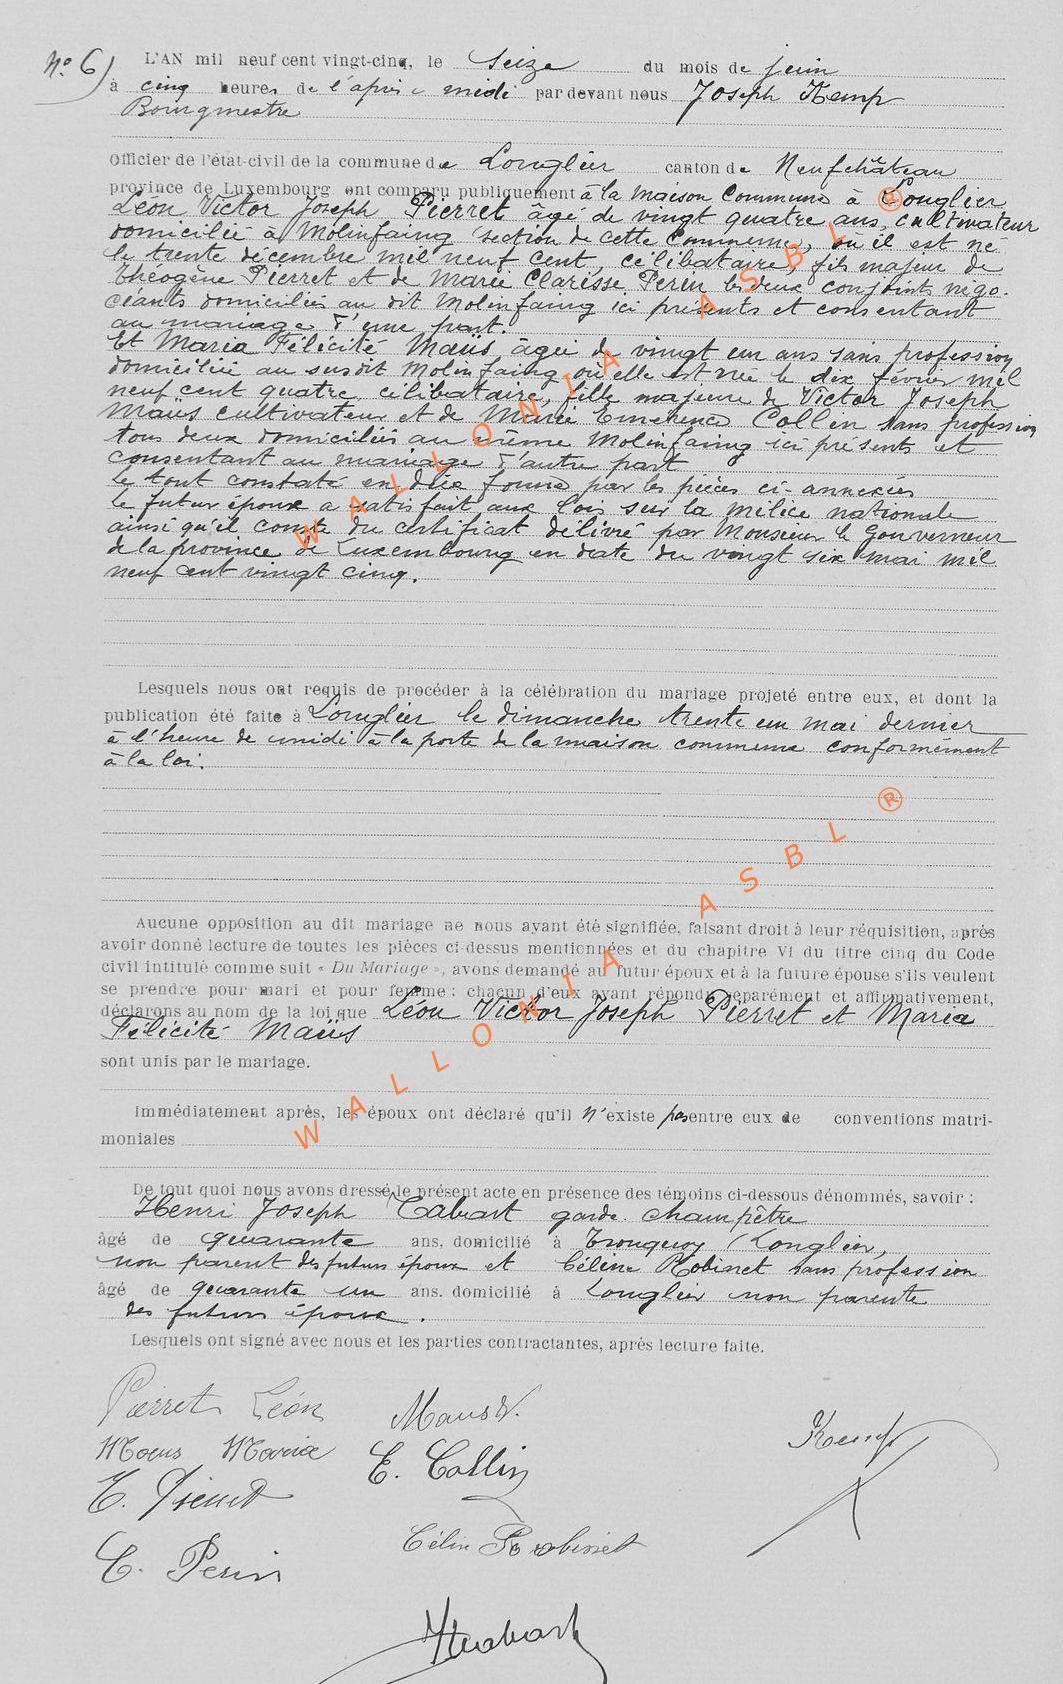 N° 6)
L'AN mil neuf cent vingt-cinq, le seize du mois de juin
à cinq heures de l'après midi par devant nous Joseph Kemp
Bourgmestre
Officier de l'état-civil de la commune de Longlier canton de Neufchâteau
province de Luxembourg ont comparu publiquement à la Maison Commune à Longlier
Léon Victor Joseph Pierret âgé de vingt quatre ans, cultivateur
domicilié à Molinfaing section de cette commune, où il est né
le trente décembre mil neuf cent, célibataire, fils majeur de
Théogène Pierret et de Marie Clarisse Perin les deux conjoints négo-
ciants domiciliés au dit Molinfaing ici présents et consentant
au mariage d'une part.
Et Maria Félicité Maüs âgée de vingt un ans sans profession
domiciliée au susdit Molinfaing où elle est née le dix février mil
neuf cent quatre, célibataire, fille majeure de Victor Joseph
Maüs cultivateur et de Marie Emerence Collin sans profession
tous deux domiciliés au même Molinfaing ici présents et
consentant au mariage d'autre part
Le tout constaté en due forme par les pièces ci-annexées
Le futur époux a satisfait aux lois sur la milice nationale
ainsi qu'il conste du certificat délivré par Monsieur le Gouverneur
de la province de Luxembourg en date du vingt six mai mil
neuf cent vingt cinq.
Lesquels nous ont requis de procéder à la célébration du mariage projeté entre eux, et dont la
publication été faite à Longlier le dimanche trente un mai dernier
à l'heure de midi à la porte de la maison commune conformément
à la loi.
Aucune opposition au dit mariage ne nous ayant été signifiée, faisant droit à leur réquisition, après
avoir donné lecture de toutes les pièces ci-dessus mentionnées et du chapitre VI du titre cinq du Code
civil intitulé comme suit « Du Mariage », avons demandé au futur époux et à la future épouse s'ils veulent
se prendre pour mari et pour femme ; chacun d'eux ayant répondu séparément et affirmativement,
déclarons au nom de la loi que Léon Victor Joseph Pierret et Maria
Félicité Maüs
sont unis par le mariage.
Immédiatement après, les époux ont déclaré qu'il n'existe pas entre eux de conventions matri-
moniales
De tout quoi nous avons dressé le présent acte en présence des témoins ci-dessous dénommés, savoir :
Henri Joseph Tabart garde champêtre
âgé de quarante ans, domicilié à Tronquoy (Longlier,
non parent des futurs époux et Céline Robinet sans profession
âgé de quarante un ans, domicilié à Longlier non parente
des futurs époux.
Lesquels ont signé avec nous et les parties contractantes, après lecture faite.
Pierret Léon Maus V. Kemp
Maus Maria E. Collin
T. Pierret
Céline Robinet
C. Perin
WALLONIA ASBL ®
WALLONIA ASBL ®